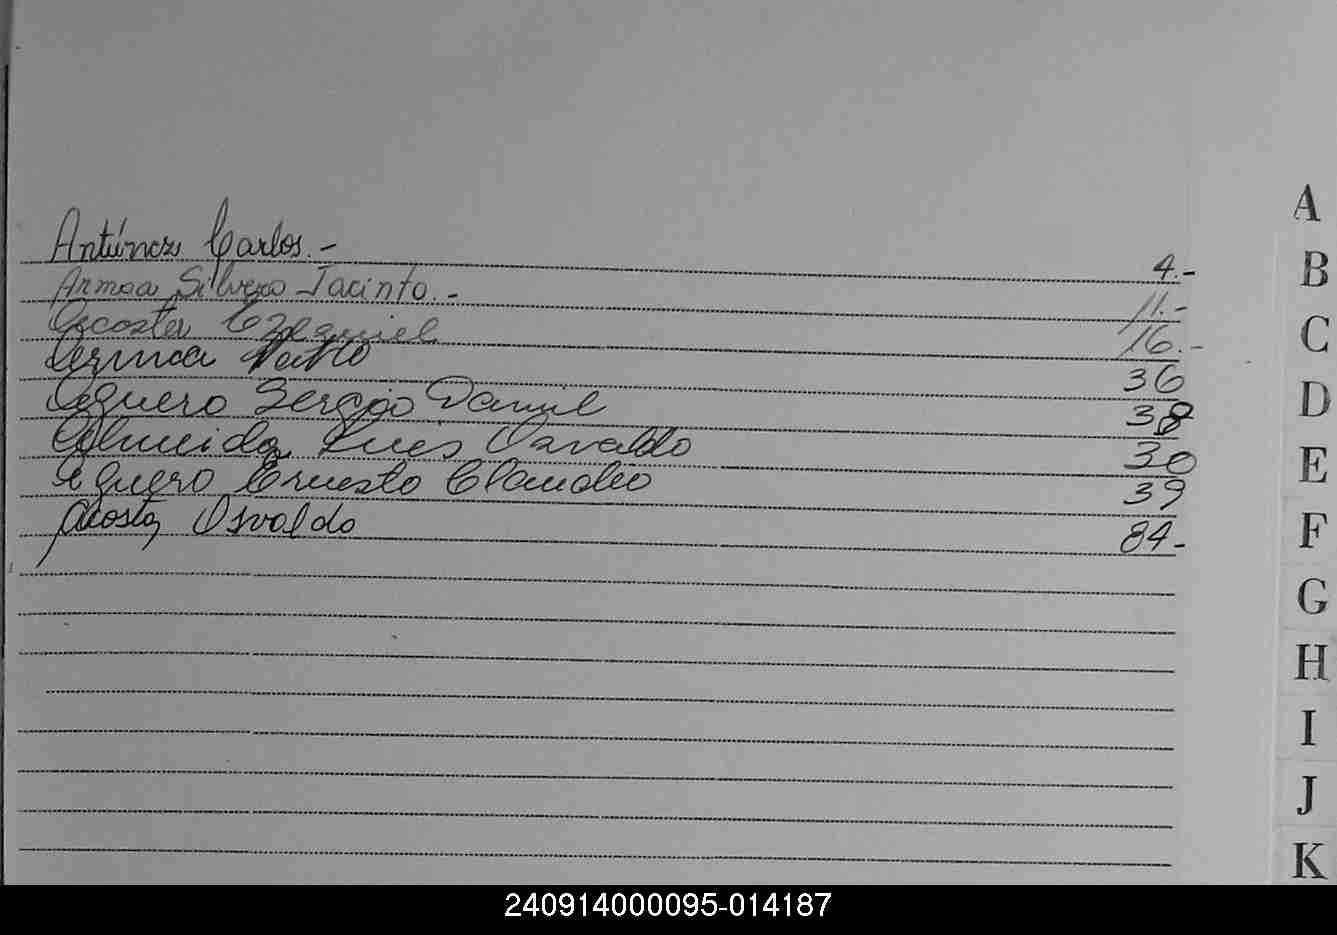 Antúnez Carlos.- 4.-
Armoa Silvero Jacinto.- 11.-
Acosta Ezequiel 16.-
Azuaga 36
Aguero Sergio Daniel 38
Almeida Luis Osvaldo 30
Aguero Ernesto Claudio 39
Acosta, Osvaldo 84-
A
B
C
D
E
F
G
H
I
J
K
240914000095-014187